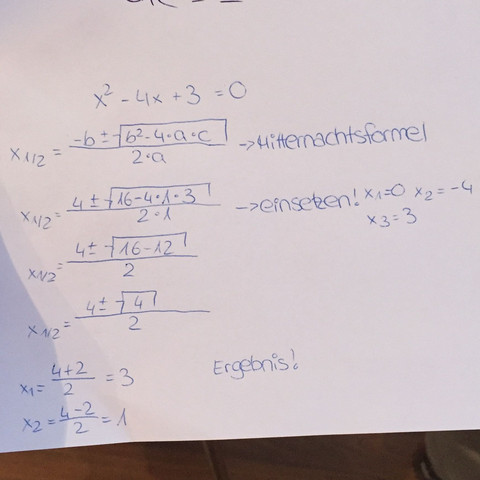 x² - 4x + 3 = 0
x₁/₂ = (-b ± √(b² - 4·a·c)) / (2·a) -> Mitternachtsformel
x₁/₂ = (4 ± √(16 - 4·1·3)) / (2·1) -> einsetzen! x₁=0 x₂=-4
x₃=3
x₁/₂ = (4 ± √(16-12)) / 2
x₁/₂ = (4 ± √4) / 2
x₁ = (4+2) / 2 = 3 Ergebnis!
x₂ = (4-2) / 2 = 1